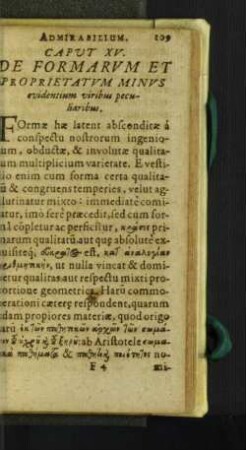 ADMIRABILIUM. 109
CAPUT XV.
DE FORMARVM ET
PROPRIETATVM MINVS
evidentium viribus pecu-
liaribus.
FOrmæ hæ latent absconditæ à
conspectu nostrorum ingenio-
rum, obductæ, & involutæ qualita-
tum multiplicium varietate. E vesti-
o enim cum forma certa qualita-
tũ & congruens temperies, velut ag-
glutinatur mixto: immediatè comi-
tatur, imo ferè præcedit, sed cum for-
mã cõpletur ac perficitur,
marum qualitatũ aut quę absolutè ex-
est, κατ' ἀναλογίαν
ut nulla vincat & domi-
netur qualitas aut respectu mixti pro-
portione geometrica. Harũ commo-
derationi cæterę respondent, quarum
quædam propiores materiæ, quod origo
ab Aristotele
& no-
F 4 mi-